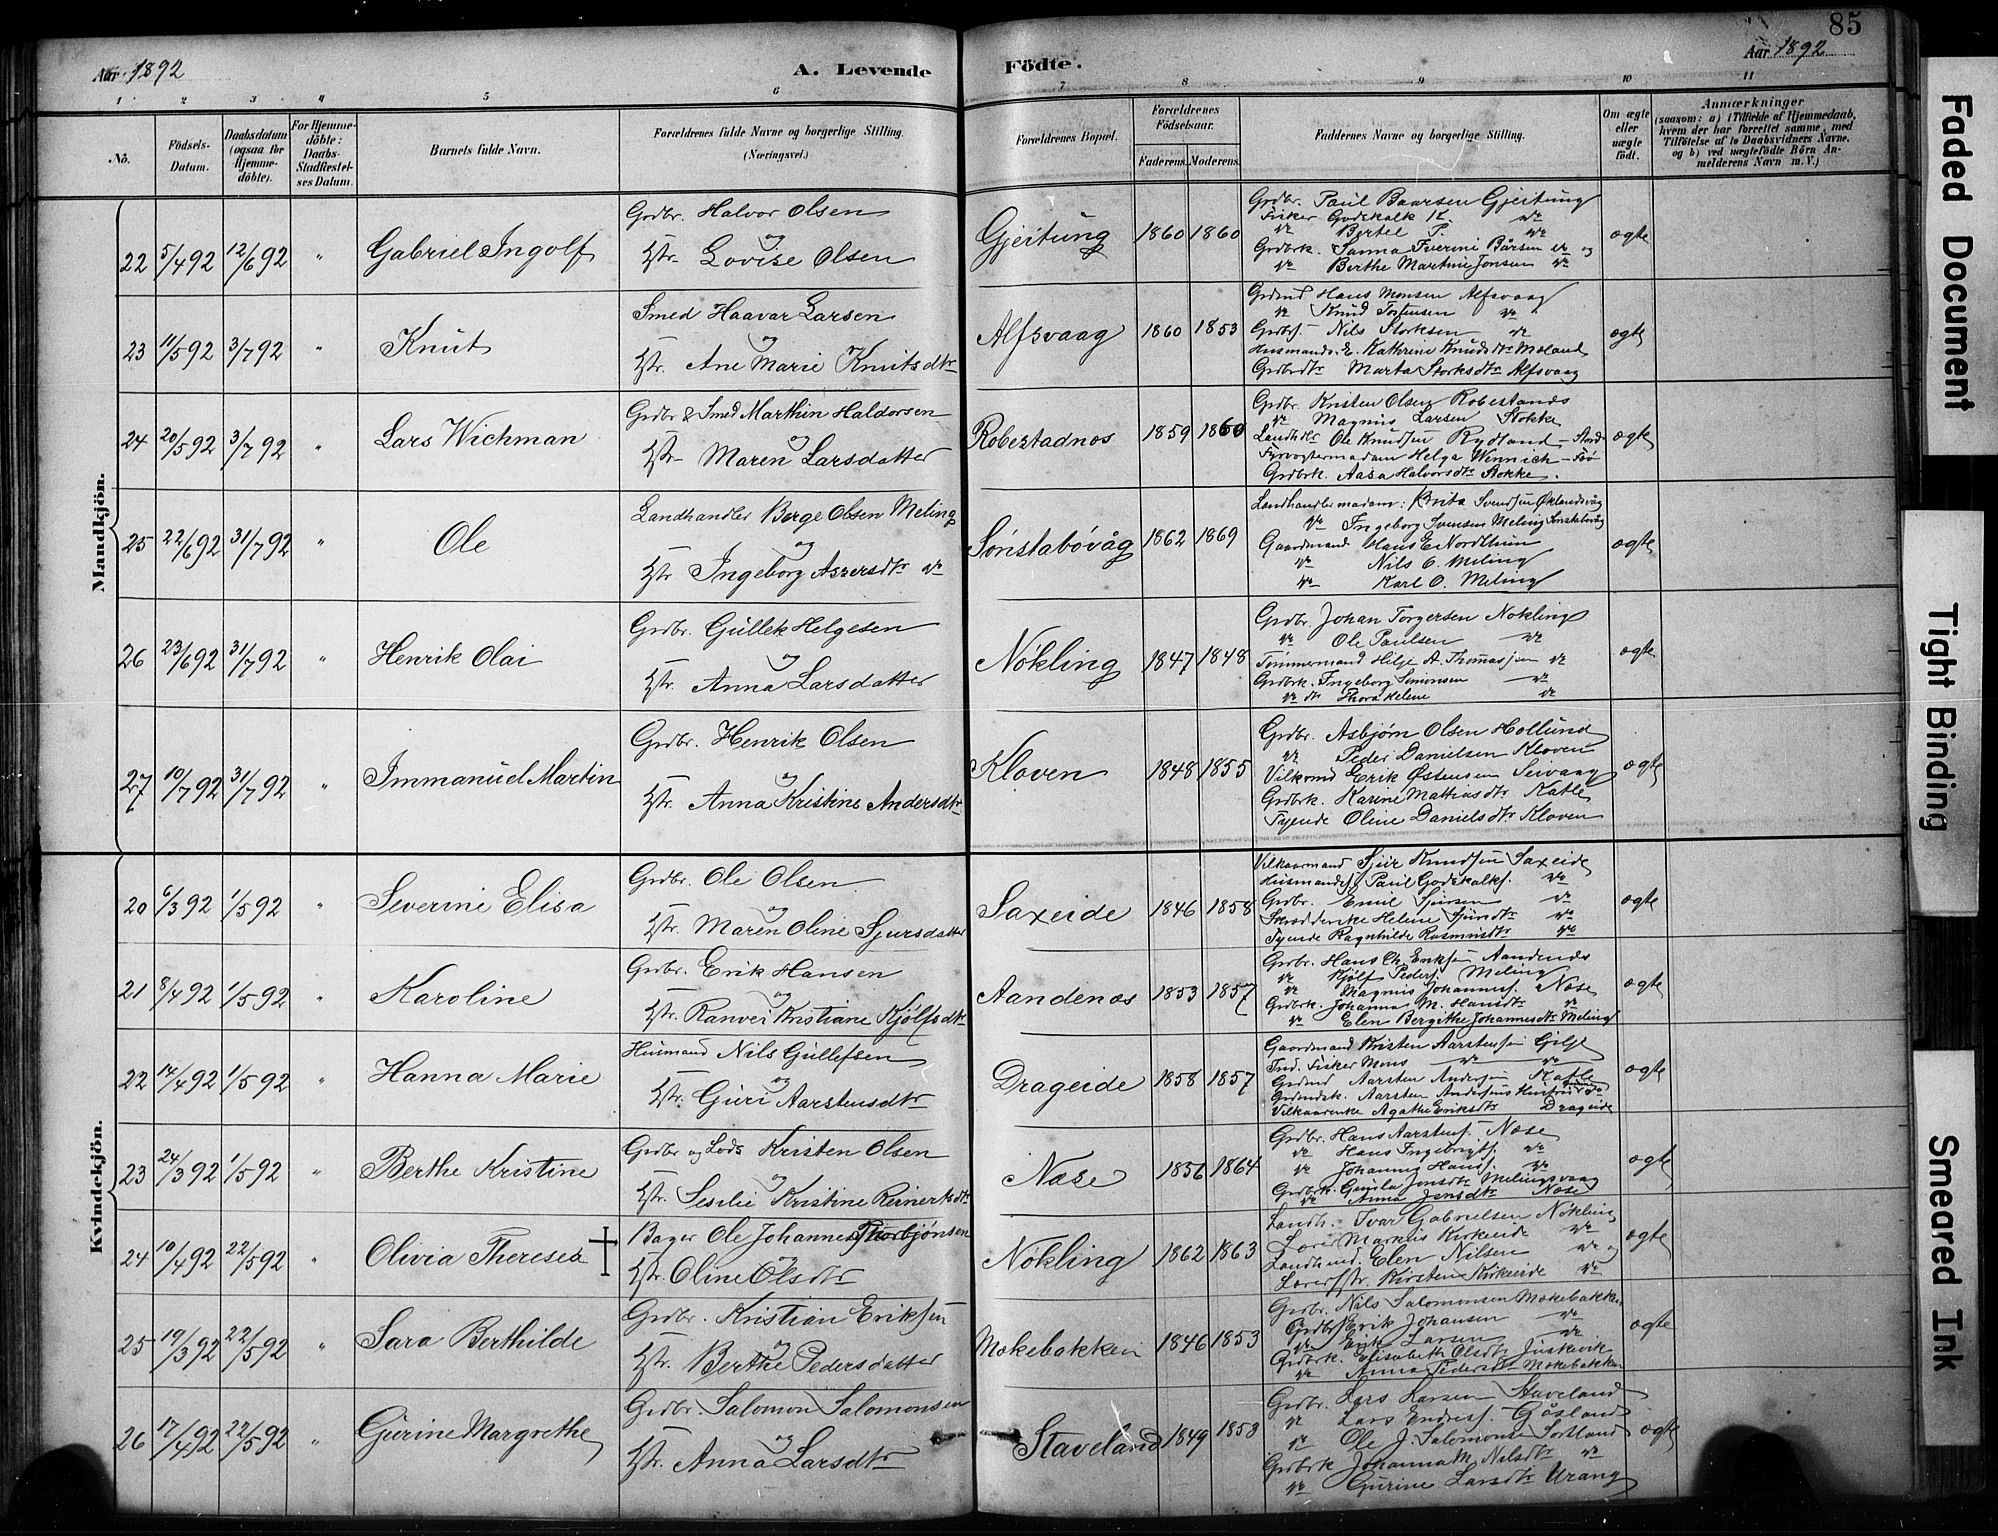 85
Aar 1892
A. Levende
Födte.
Aar 1892
1 2 3 4 5 6 7 8 9 10 11
No.
Födsels-Datum.
Daabsdatum (ogsaa for Hjemme-döbte).
For Hjemme-döbte: Daabs-Stadfæstel-ses Datum.
Barnets fulde Navn.
Forældrenes fulde Navne og borgerlige Stilling.
(Næringsvei.)
Forældrenes Bopæl.
Forældrenes Födselsaar.
Faderens.
Moderens.
Faddernes Navne og borgerlige Stilling.
Om ægte eller uægte födt.
Anmærkninger
(saasom: a) i Tilfælde af Hjemmedaab, hvem der har forrettet samme, med Tilföielse af to Daabsvidners Navne. og b) ved uægtefödte Börn An-melderens Navn m. V.)
Mandkjön.
22 5/4 92 12/6 92 " Gabriel Ingolf
Grdbr. Halvor Olsen
og
Hstr. Lovise Olsen
Gjeitung 1860 1860
Grdbr. Paul Baarsen Gjeitung
Fisker Godskalk K. do
do Bertel P. do
Grdbrk. Sanna Bårsen do og
do Berthe Martine Jonsen do
ægte
23 11/5 92 3/7 92 " Knut
Smed Haavar Larsen
og
Hstr. Ane Marie Knutsdtr
Alfsvaag 1860 1853
Grdmd Hans Monsen Alfsvaag
do Knud Torstensen do
Grdbrf. Nils Storksen do
Husmands. E. Kathrine Knudsdtr Moland
Grdbrdtr Marta Storksdtr Alfsvaag
ægte
24 20/5 92 3/7 92 " Lars Wichman
Grdbr & Smed Marthin Haldorsen
og
Hstr. Maren Larsdatter
Robestadnæs 1859 1860
Grdbr. Kristen Olsen Robestadnæs
do Magnus Larsen Stokke
Landhdlr Ole Knudsen Rydland - Stord
Fyrvogtermadam Helga Wennich
Grdbrk. Aasa Halvorsdtr Stokke.
ægte
25 22/6 92 31/7 92 " Ole
Landhandler Børge Olsen Meling
og
Hstr. Ingeborg Assersdtr do
Sønstabøvåg 1862 1869
Landhandlermadam: Brita Svendsen Øklandsvåg
do Ingeborg Svensen Meling Sønstabøvåg
Gaardmand Hans E. Nordthun
do Nils O. Meling
do Karl O. Meling
ægte
26 23/6 92 31/7 92 " Henrik Olai
Grdbr. Gullek Helgesen
og
Hstr. Anna Larsdatter
Nökling 1847 1848
Grdbr. Johan Torgersen Nökling
do Ole Paulsen do
Tømmermand Helje A. Thomassen do
Grdbrk. Ingeborg Simonsen do
do dtr Thora Helene do
ægte
27 10/7 92 31/7 92 " Immanuel Martin
Grdbr. Henrik Olsen
og
Hstr. Anna Kristine Andersdtr
Kloven 1848 1855
Grdbr. Asbjørn Olsen Hollund
do Peder Danielsen Kloven
Vilkmd Erik Østensen Seivaag
Grdbrk. Karine Mattiasdtr Katle
Tjende Oline Danielsdtr Kloven
ægte
Kvindekjön.
20 6/3 92 1/5 92 " Severine Elisa
Grdbr. Ole Olsen
og
Hstr. Maren Oline Sjursdatter
Saxeide 1846 1858
Vilkaarmand Sjur Knudsen Saxeide
Husmandsf. Paul Godskalks. do
Grdbr. Emil Sjursen do
Skrædderske Helene Sjursdtr do
Tjende Ragnhilde Rasmusdtr do
ægte
21 8/4 92 1/5 92 " Karoline
Grdbr. Erik Hansen
og
Hstr. Ranvei Kristiane Kjølfsdtr
Aandenæs 1853 1857
Grdbr. Hans Ch. Eriksen Aandenæs
do Kjølf Peders. Meling
do Magnus Johanness. Næse
Grdbrk. Johanna M. Hansdtr do
do Elen Bergithe Johannesdtr Meling
ægte
22 14/4 92 1/5 92 " Hanna Marie
Husmand Nils Gullefsen
og
Hstr. Guri Aarstensdtr
Drageide 1858 1857
Gaardmand Kristen Aarstensen Gilje
Ind. Fisker Mons do do
Grdmd Aarsten Andersen Katle
Grdmdsk. Aarsten Andersens Hustru do
Vilkaarenke Agathe Eriksdtr Drageide
ægte
23 24/3 92 1/5 92 " Berthe Kristine
Grdbr og Lods Kristen Olsen
og
Hstr. Lesilie Kristine Reinertsdtr
Næse 1856 1864
Grdbr. Hans Aarstens. Næse
do Hans Ingebrigts. do
do Johannes Hans. do
Grdbrk. Gunla Jonsdtr Melingsvaag
do Anna Jensdtr Næse
ægte
24 10/4 92 22/5 92 " Olivia Theresea †
Bager Ole Johannes Thorbjönsen
og
Hstr. Oline Olsdtr
Nökling 1862 1863
Landh. Ivar Gabrielsen Nökling
Lærer Markus Kirkeide do
Landhmd. Elen Nilsen do og
Lærer hstr. Kirsten Kirkeide do
ægte
25 19/3 92 22/5 92 " Sara Berthilde
Grdbr. Kristian Eriksen
og
Hstr. Berthe Pedersdatter
Mækebakken 1846 1853
Grdbr. Nils Salomonsen Mækebakken
Grdbrf Erik Johansen do
do Erik Larsen do
Grdbrk. Elisabeth Olsdtr Juskevik
do Anna Pedersdtr Mækebakken
ægte
26 17/4 92 22/5 92 " Gurine Margrethe
Grdbr. Salomon Salomonsen
og
Hstr. Anna Larsdtr
Staveland 1849 1853
Grdbr. Lars Larsen Staveland
do Lars Endres. Gåsland
do Ole J. Salomons Sortland
Grdbrk Johanna M. Nilsdtr do
do Gurine Larsdtr Urang
ægte
Faded Document
Tight Binding
Smeared Ink